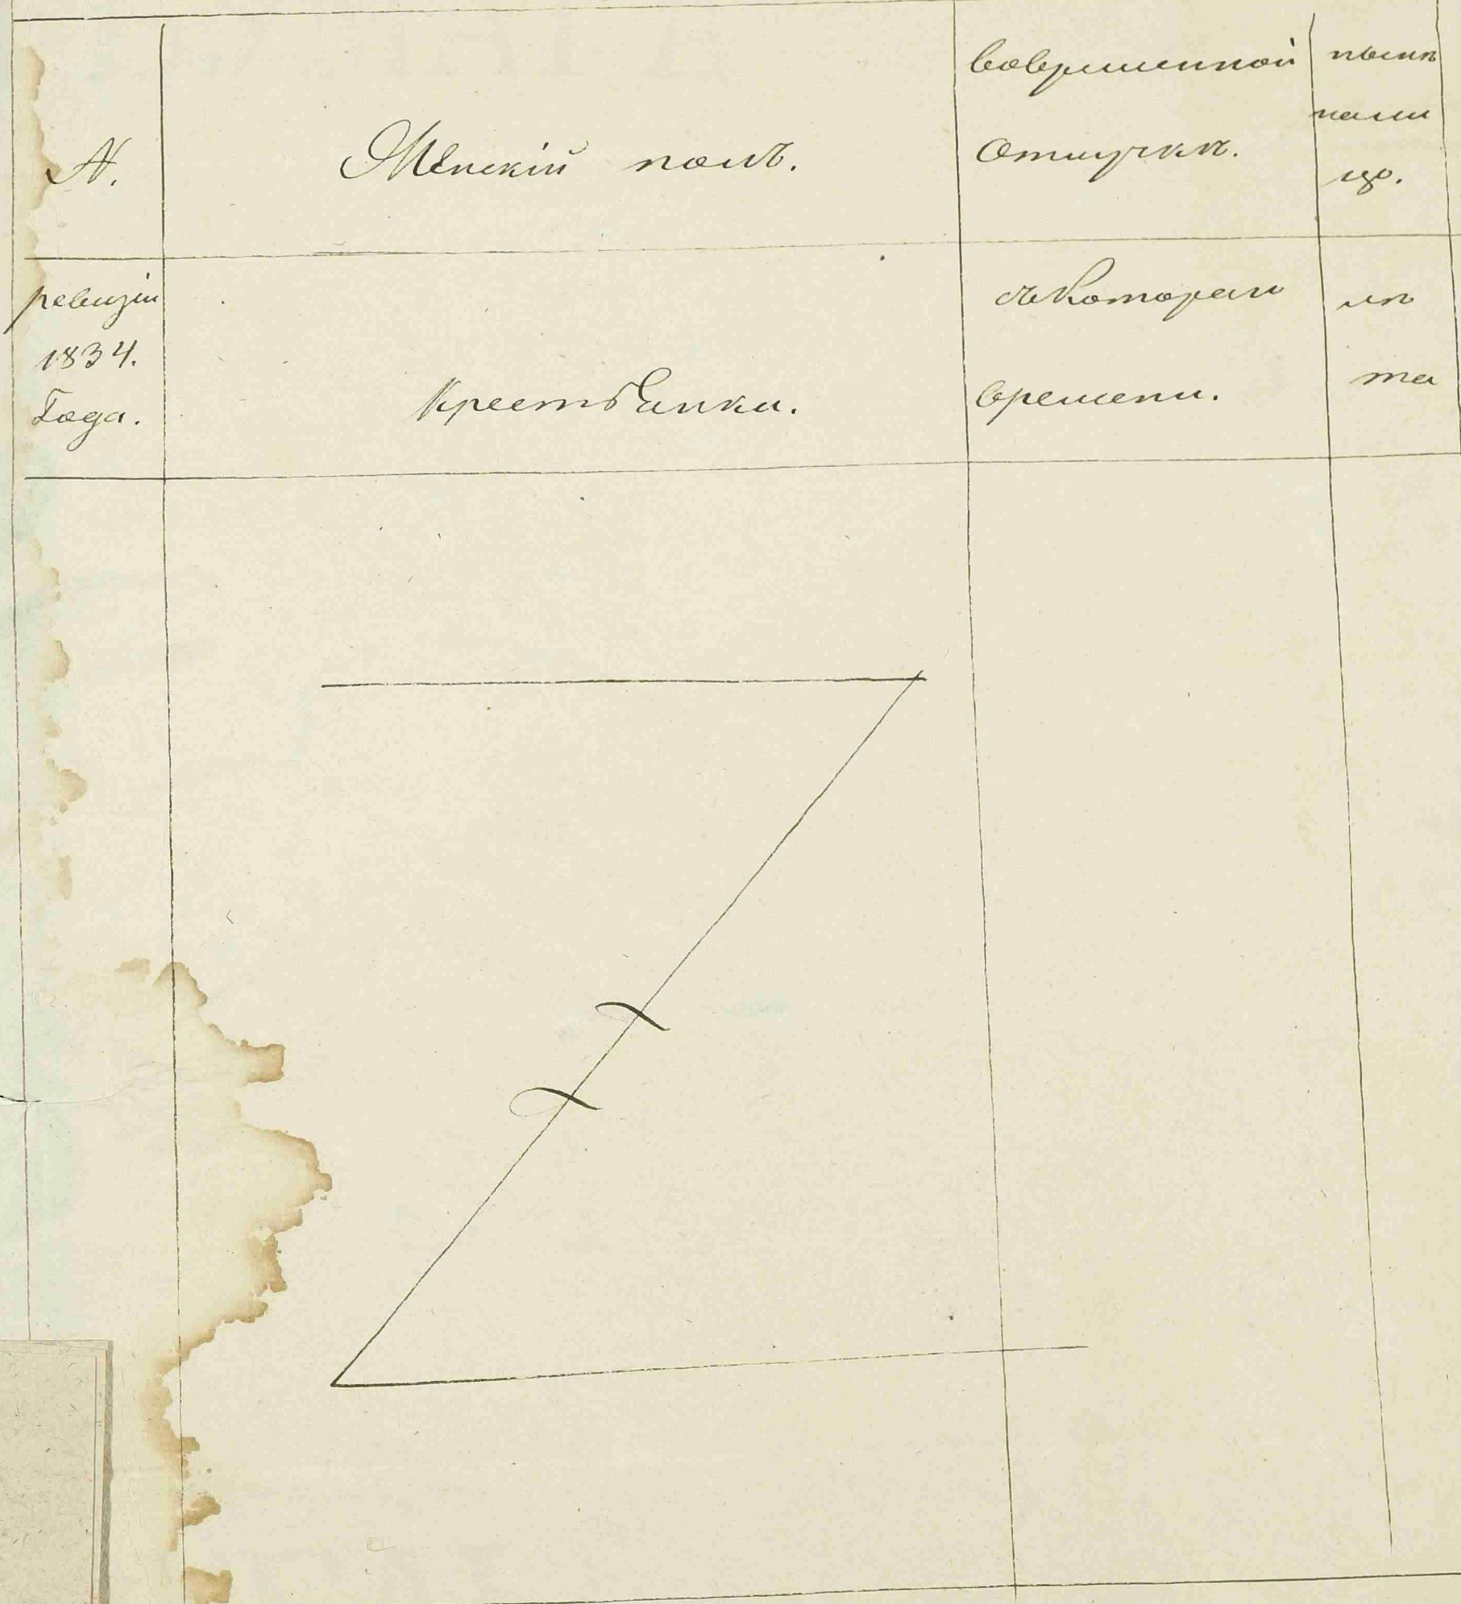 N.
Женскій полъ.
вовременной
отлучкѣ.
нынѣ
нали
цо.
ревизіи
1834.
Года.
Крестьянки.
съ Котораго
времени.
лѣ
та